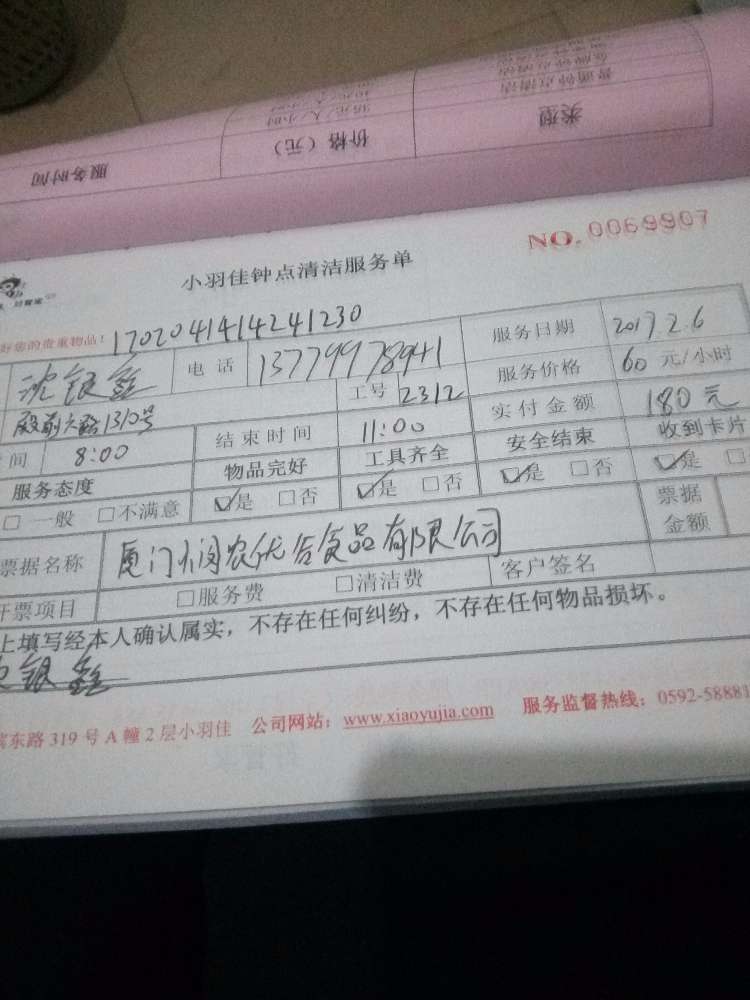 类型
价格（元）
服务时间
NO. 0069907
小羽佳钟点清洁服务单
好您的贵重物品！ 1702041414241230
沈银鑫 电话 13779978941 服务日期 2017.2.6
殿前六路1310号 工号 2312 服务价格 60 元/小时
间 8:00 结束时间 11:00 实付金额 180元
服务态度 物品完好 工具齐全 安全结束 收到卡片
□ 一般 □不满意 ☑是 □否 ☑是 □否 ☑是 □否 ☑是
票据名称 厦门闽农优谷食品有限公司 票据金额
开票项目 □服务费 □清洁费 客户签名
上填写经本人确认属实，不存在任何纠纷，不存在任何物品损坏。
银鑫
东路 319 号 A 幢 2 层小羽佳 公司网站：www.xiaoyujia.com 服务监督热线：0592-58881